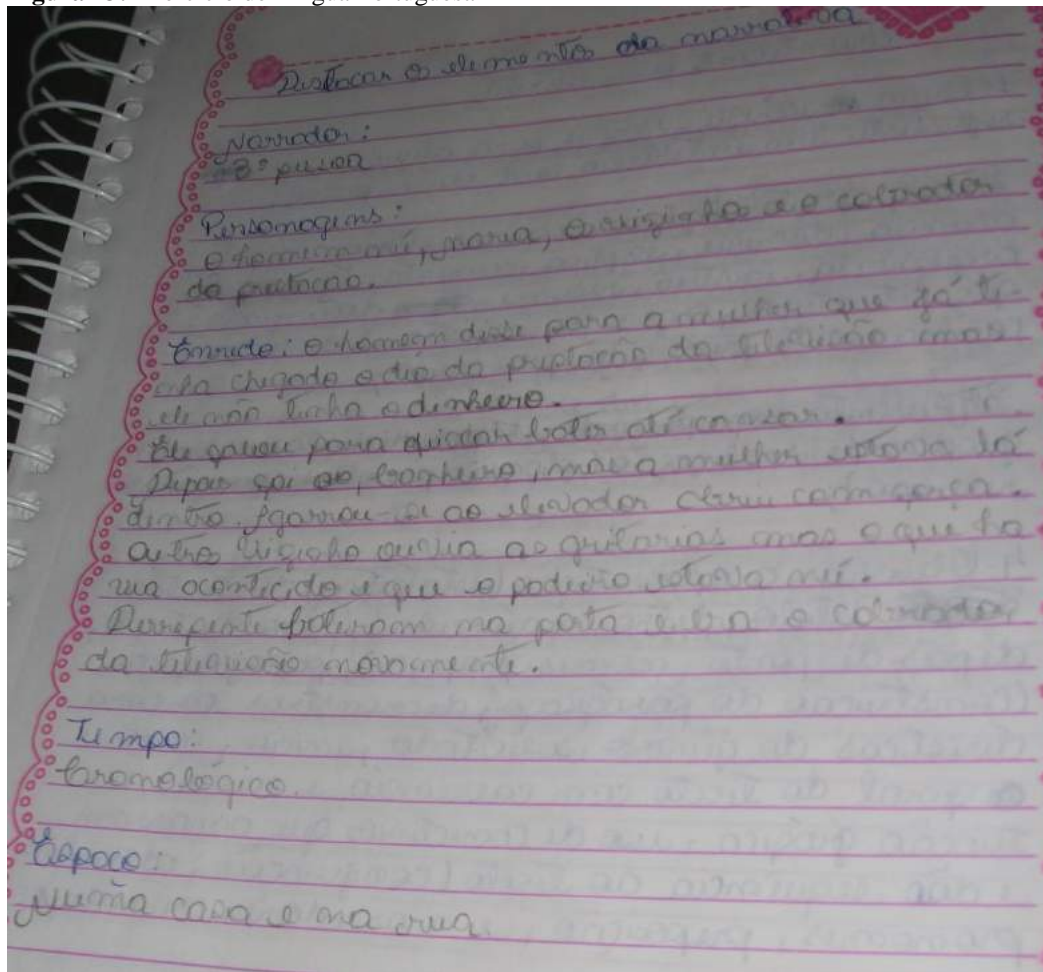 Destacar os elementos da narrativa
Narrador:
3ª pessoa
Personagens:
o homem nú, maria, o vizinho e o cobrador
da prestação.
Enredo: o homem disse para a mulher que já ti-
nha chegado o dia da prestação da televisão mas
ele não tinha o dinheiro.
Ele falou para deixar bater até cansar.
Depois foi ao banheiro, mas a mulher estava lá
dentro. Agarrou-se ao elevador com força.
outro vizinho ouvia as gritarias mas o que ha
via acontecido é que o padeiro estava nú.
Derrepente bateram na porta e era o cobrador
da televisão novamente.
Tempo:
Cronológico.
Espaço:
Numa casa e na rua.